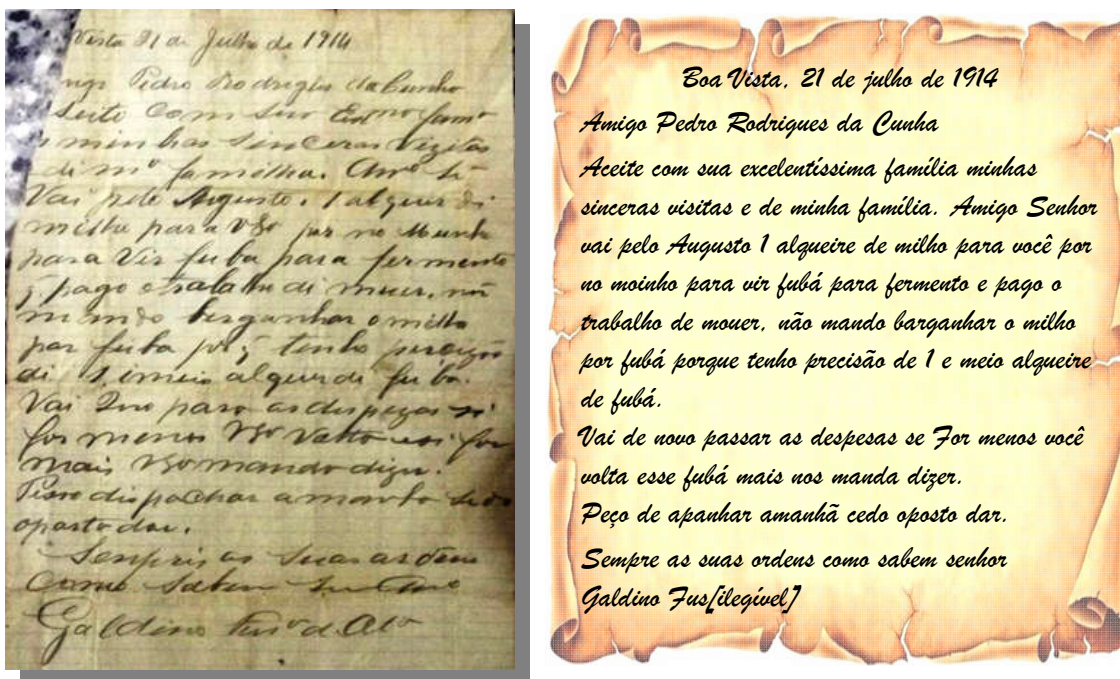 Vista 21 de Julho de 1914
Pedro Rodrigues da Cunha
com sua
minhas sinceras vizitas
di familha. Amo
Vai pelo Augusto. 1 alqueri di
milho para por no
para Vir fuba para fermento
pago di muer. não
mando barganhar o milho
por fuba tenho
di 1 imeio alqueri di fuba.
Vai para as dispezas si
for menos for
mais mando dizer.
dispachar a manha sedo
oposto dar.
Sempre as suas ordens
como sabem
Galdino
Boa Vista, 21 de julho de 1914
Amigo Pedro Rodrigues da Cunha
Aceite com sua excelentíssima família minhas
sinceras visitas e de minha família. Amigo Senhor
vai pelo Augusto 1 alqueire de milho para você por
no moinho para vir fubá para fermento e pago o
trabalho de mouer, não mando barganhar o milho
por fubá porque tenho precisão de 1 e meio alqueire
de fubá.
Vai de novo passar as despesas se For menos você
volta esse fubá mais nos manda dizer.
Peço de apanhar amanhã cedo oposto dar.
Sempre as suas ordens como sabem senhor
Galdino Fus[ilegível]